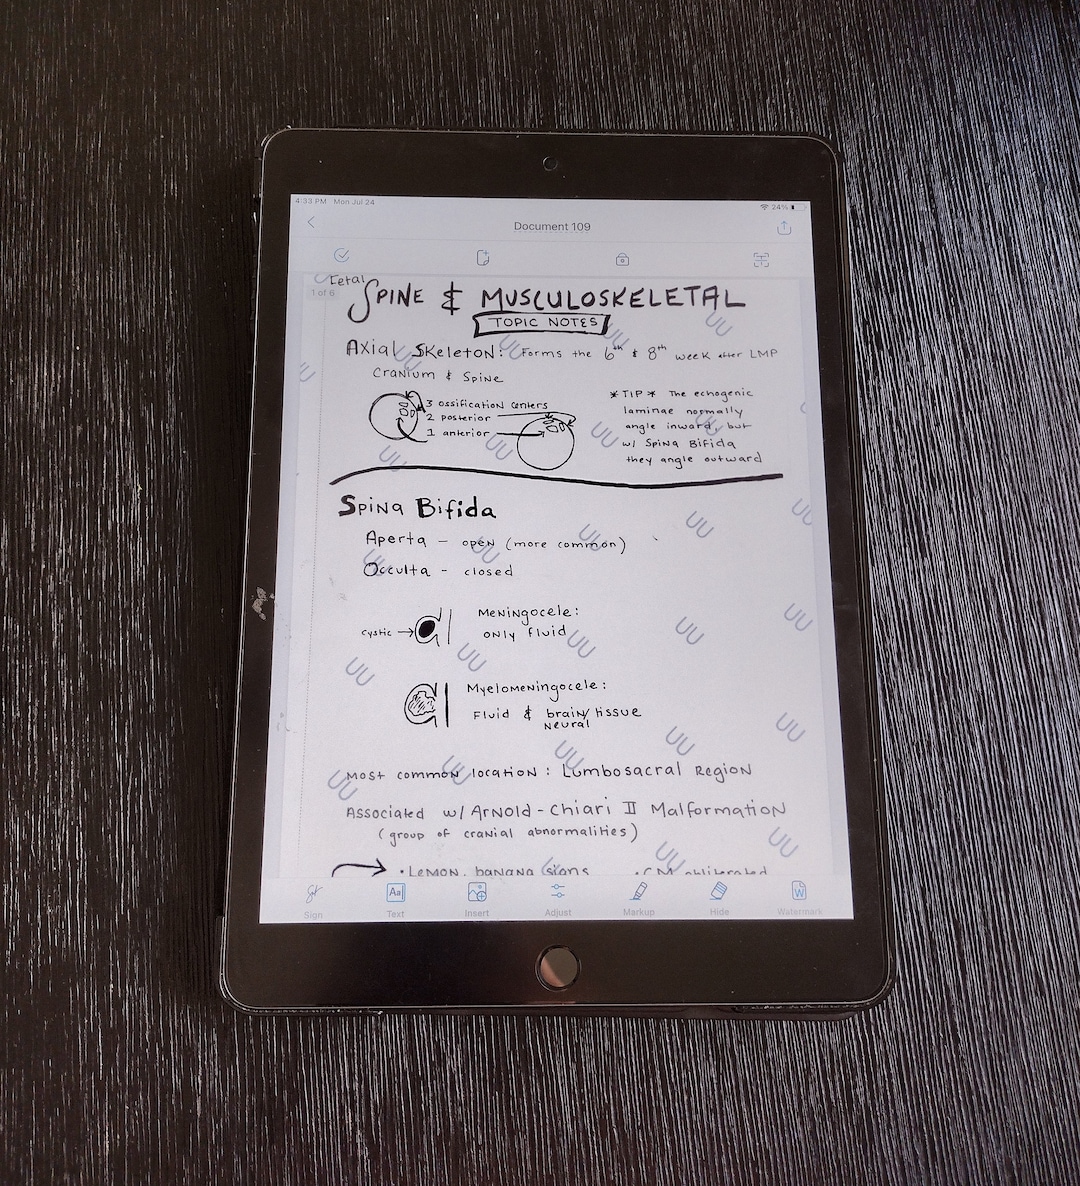 4:33 PM Mon Jul 24
24%
Document 109
1 of 6
Fetal
SPINE & MUSCULOSKELETAL
TOPIC NOTES
Axial Skeleton: Forms the 6th & 8th week after LMP
Cranium & Spine
3 ossification centers
2 posterior
1 anterior
*TIP* The echogenic
laminae normally
angle inward, but
w/ Spina Bifida
they angle outward
Spina Bifida
Aperta - open (more common)
Occulta - closed
cystic
Meningocele:
only fluid
Myelomeningocele:
Fluid & brain/tissue
neural
Most common location: Lumbosacral Region
Associated w/ Arnold-Chiari II Malformation
(group of cranial abnormalities)
• Lemon, banana signs • CM obliterated
Sign Text Insert Adjust Markup Hide Watermark